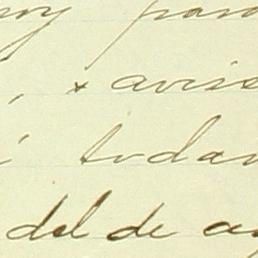 y para
, y avis
todav
del de a